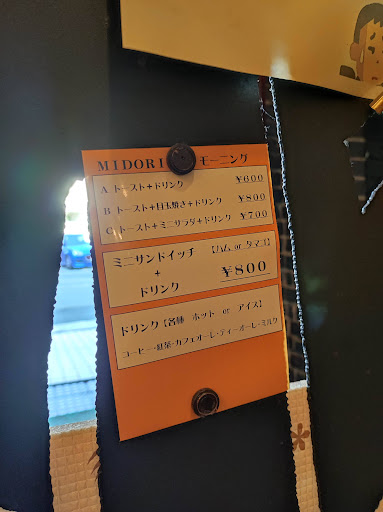 MIDORI モーニング
A トースト+ドリンク ¥600
B トースト+目玉焼き+ドリンク ¥800
C トースト+ミニサラダ+ドリンク ¥700
ミニサンドイッチ 【ハム or タマゴ】
+
ドリンク ¥800
ドリンク【各種 ホット or アイス】
コーヒー・紅茶・カフェオーレ・ティーオーレ・ミルク